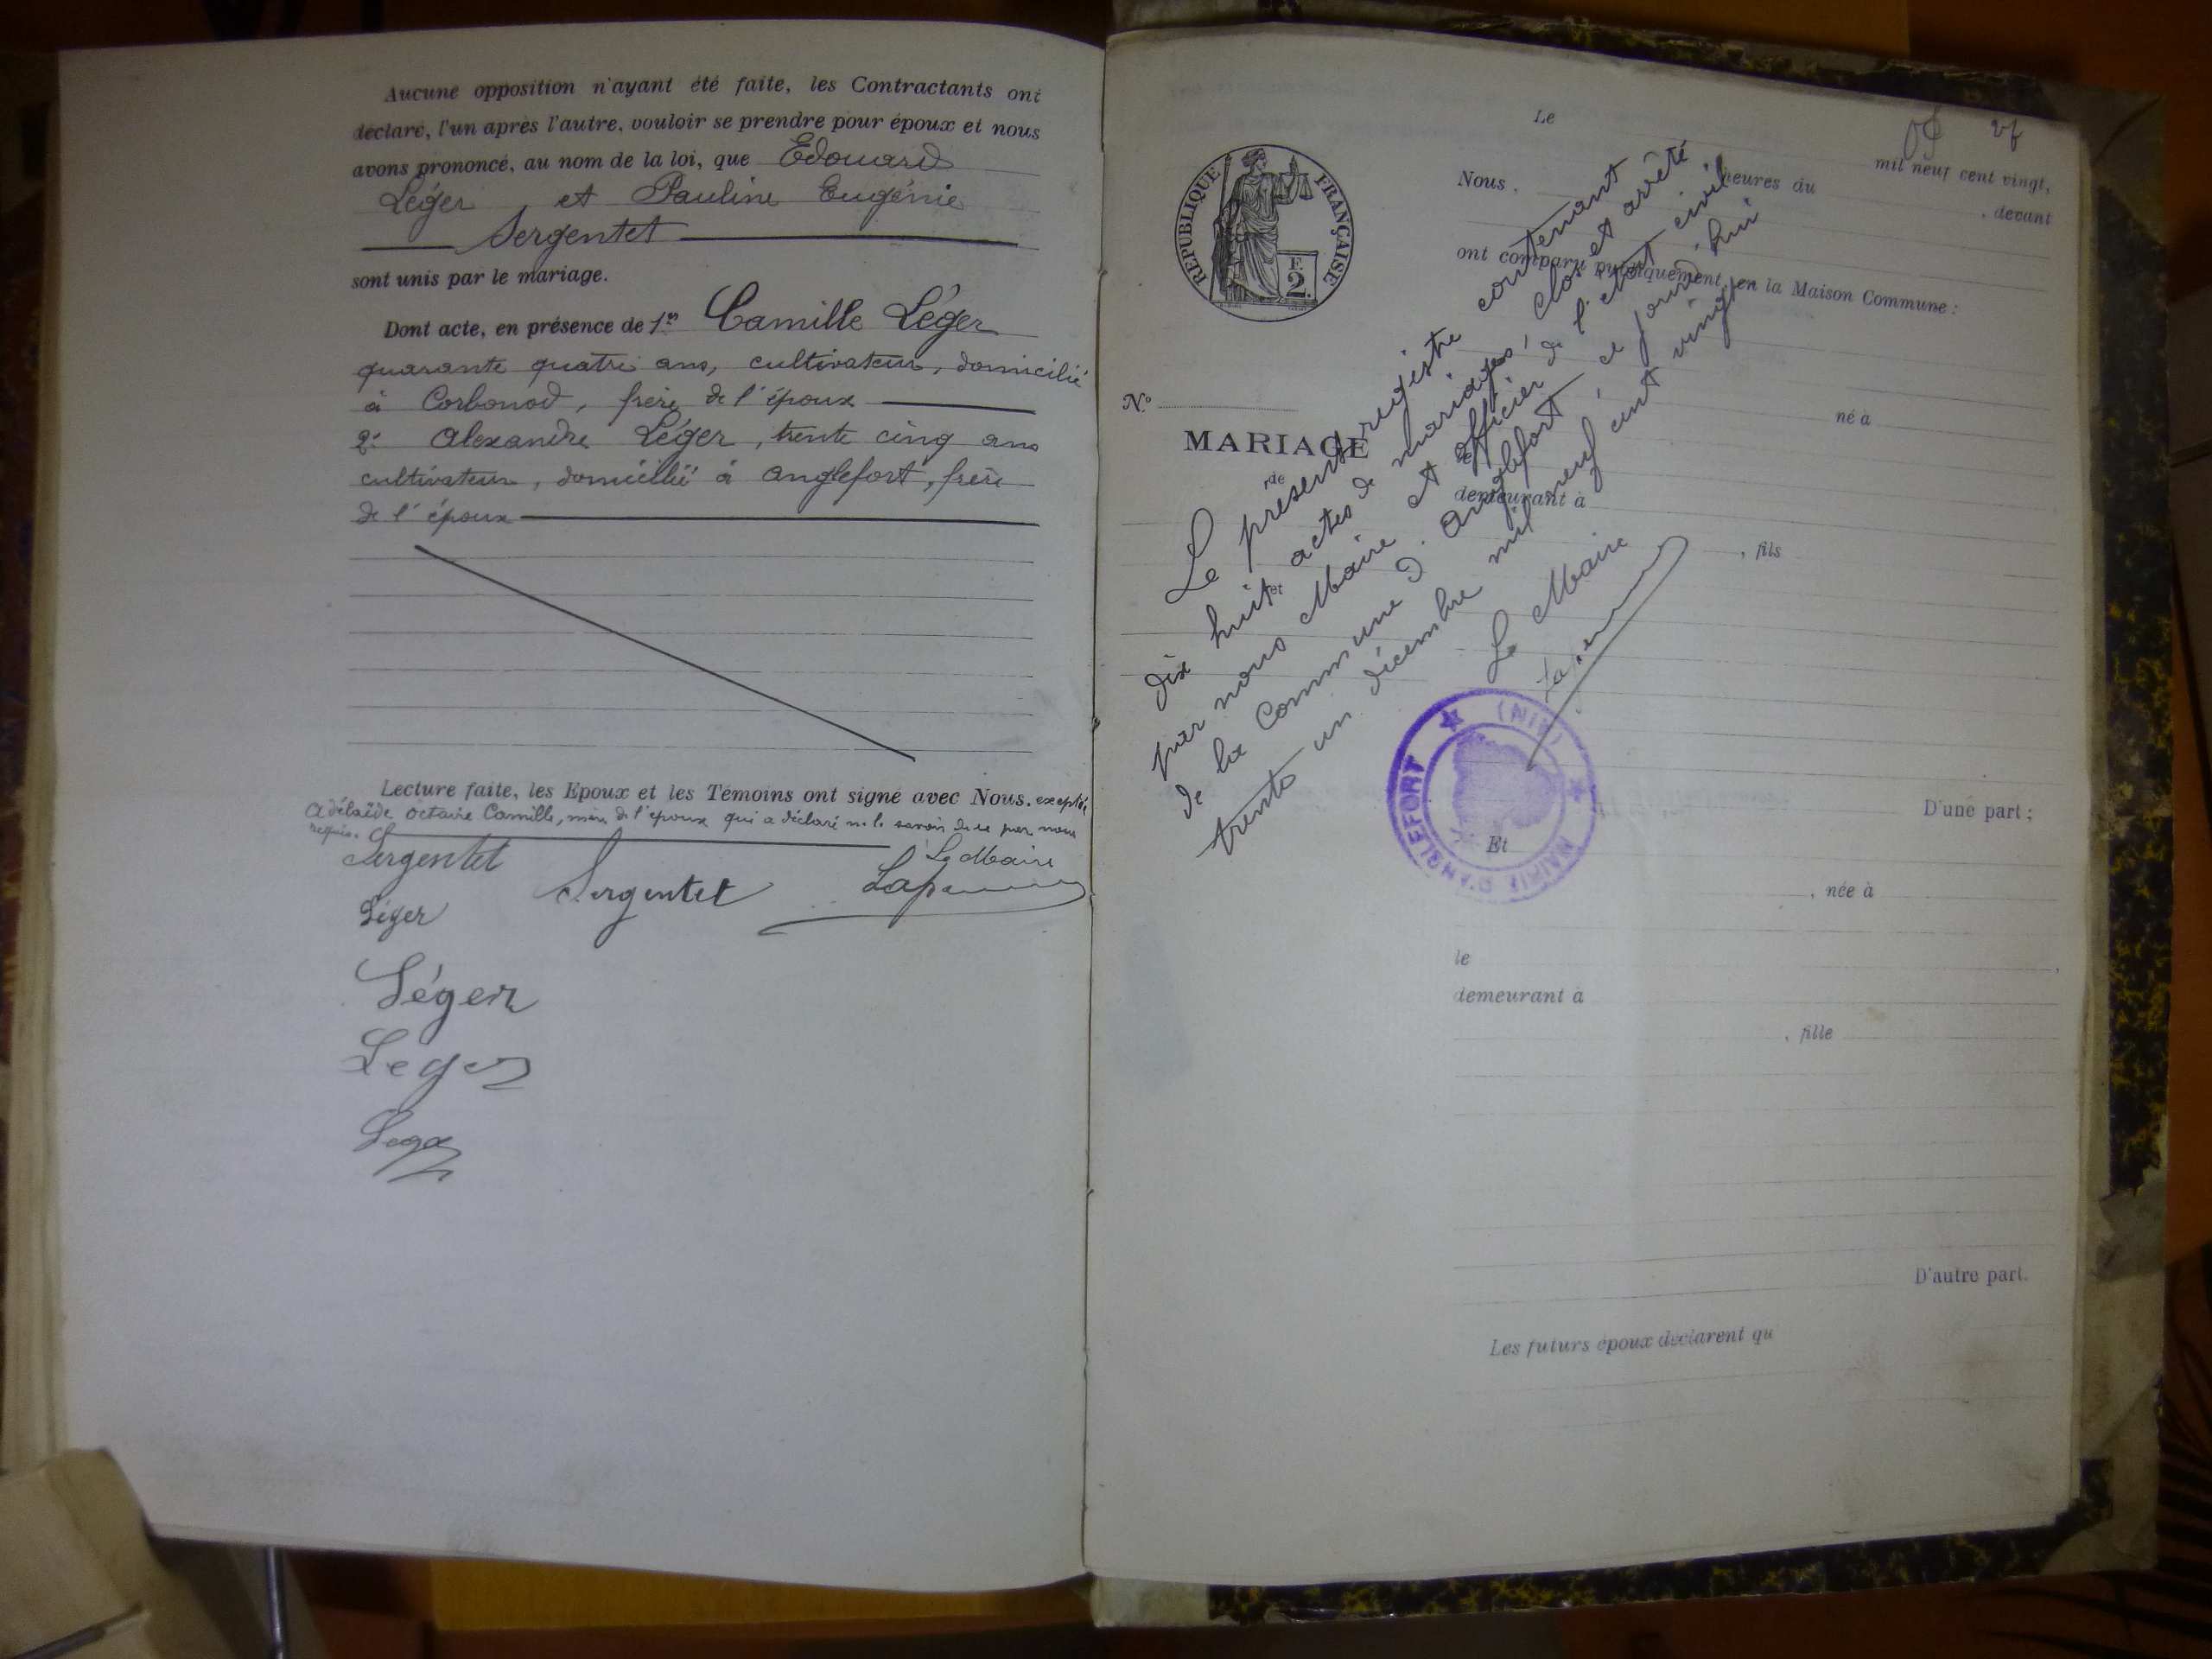 Aucune opposition n'ayant été faite, les Contractants ont
déclaré, l'un après l'autre, vouloir se prendre pour époux et nous
avons prononcé, au nom de la loi, que Edouard
Léger et Pauline Eugénie
Sergentet
sont unis par le mariage.
Dont acte, en présence de 1er Camille Léger
quarante quatre ans, cultivateur, domicilié
à Corbonod, frère de l'époux
2e Alexandre Léger, trente cinq ans
cultivateur, domicilié à Anglefort, frère
de l'époux
Lecture faite, les Epoux et les Témoins ont signé avec Nous. excepté
Adélaïde Octavie Camille, mère de l'époux qui a déclaré ne le savoir de ce par nous
requis.
Le Maire
Sergentet
Sergentet
Léger
Léger
Leger
Leger
Le
mil neuf cent vingt,
heures du
Nous,
, devant
ont comparu publiquement, en la Maison Commune :
RÉPUBLIQUE FRANÇAISE
F.
2.
N.º
MARIAGE
de
et
né à
le
demeurant à
, fils
Le présent registre contenant
dix huit actes de mariages, clos et arrêté
par nous Maire et officier de l'état civil
de la Commune d'Anglefort ce jourd'hui
trente un décembre mil neuf cent vingt
Le Maire
MAIRIE D'ANGLEFORT
(AIN)
D'une part ;
Et
, née à
le
demeurant à
, fille
D'autre part.
Les futurs époux déclarent qu